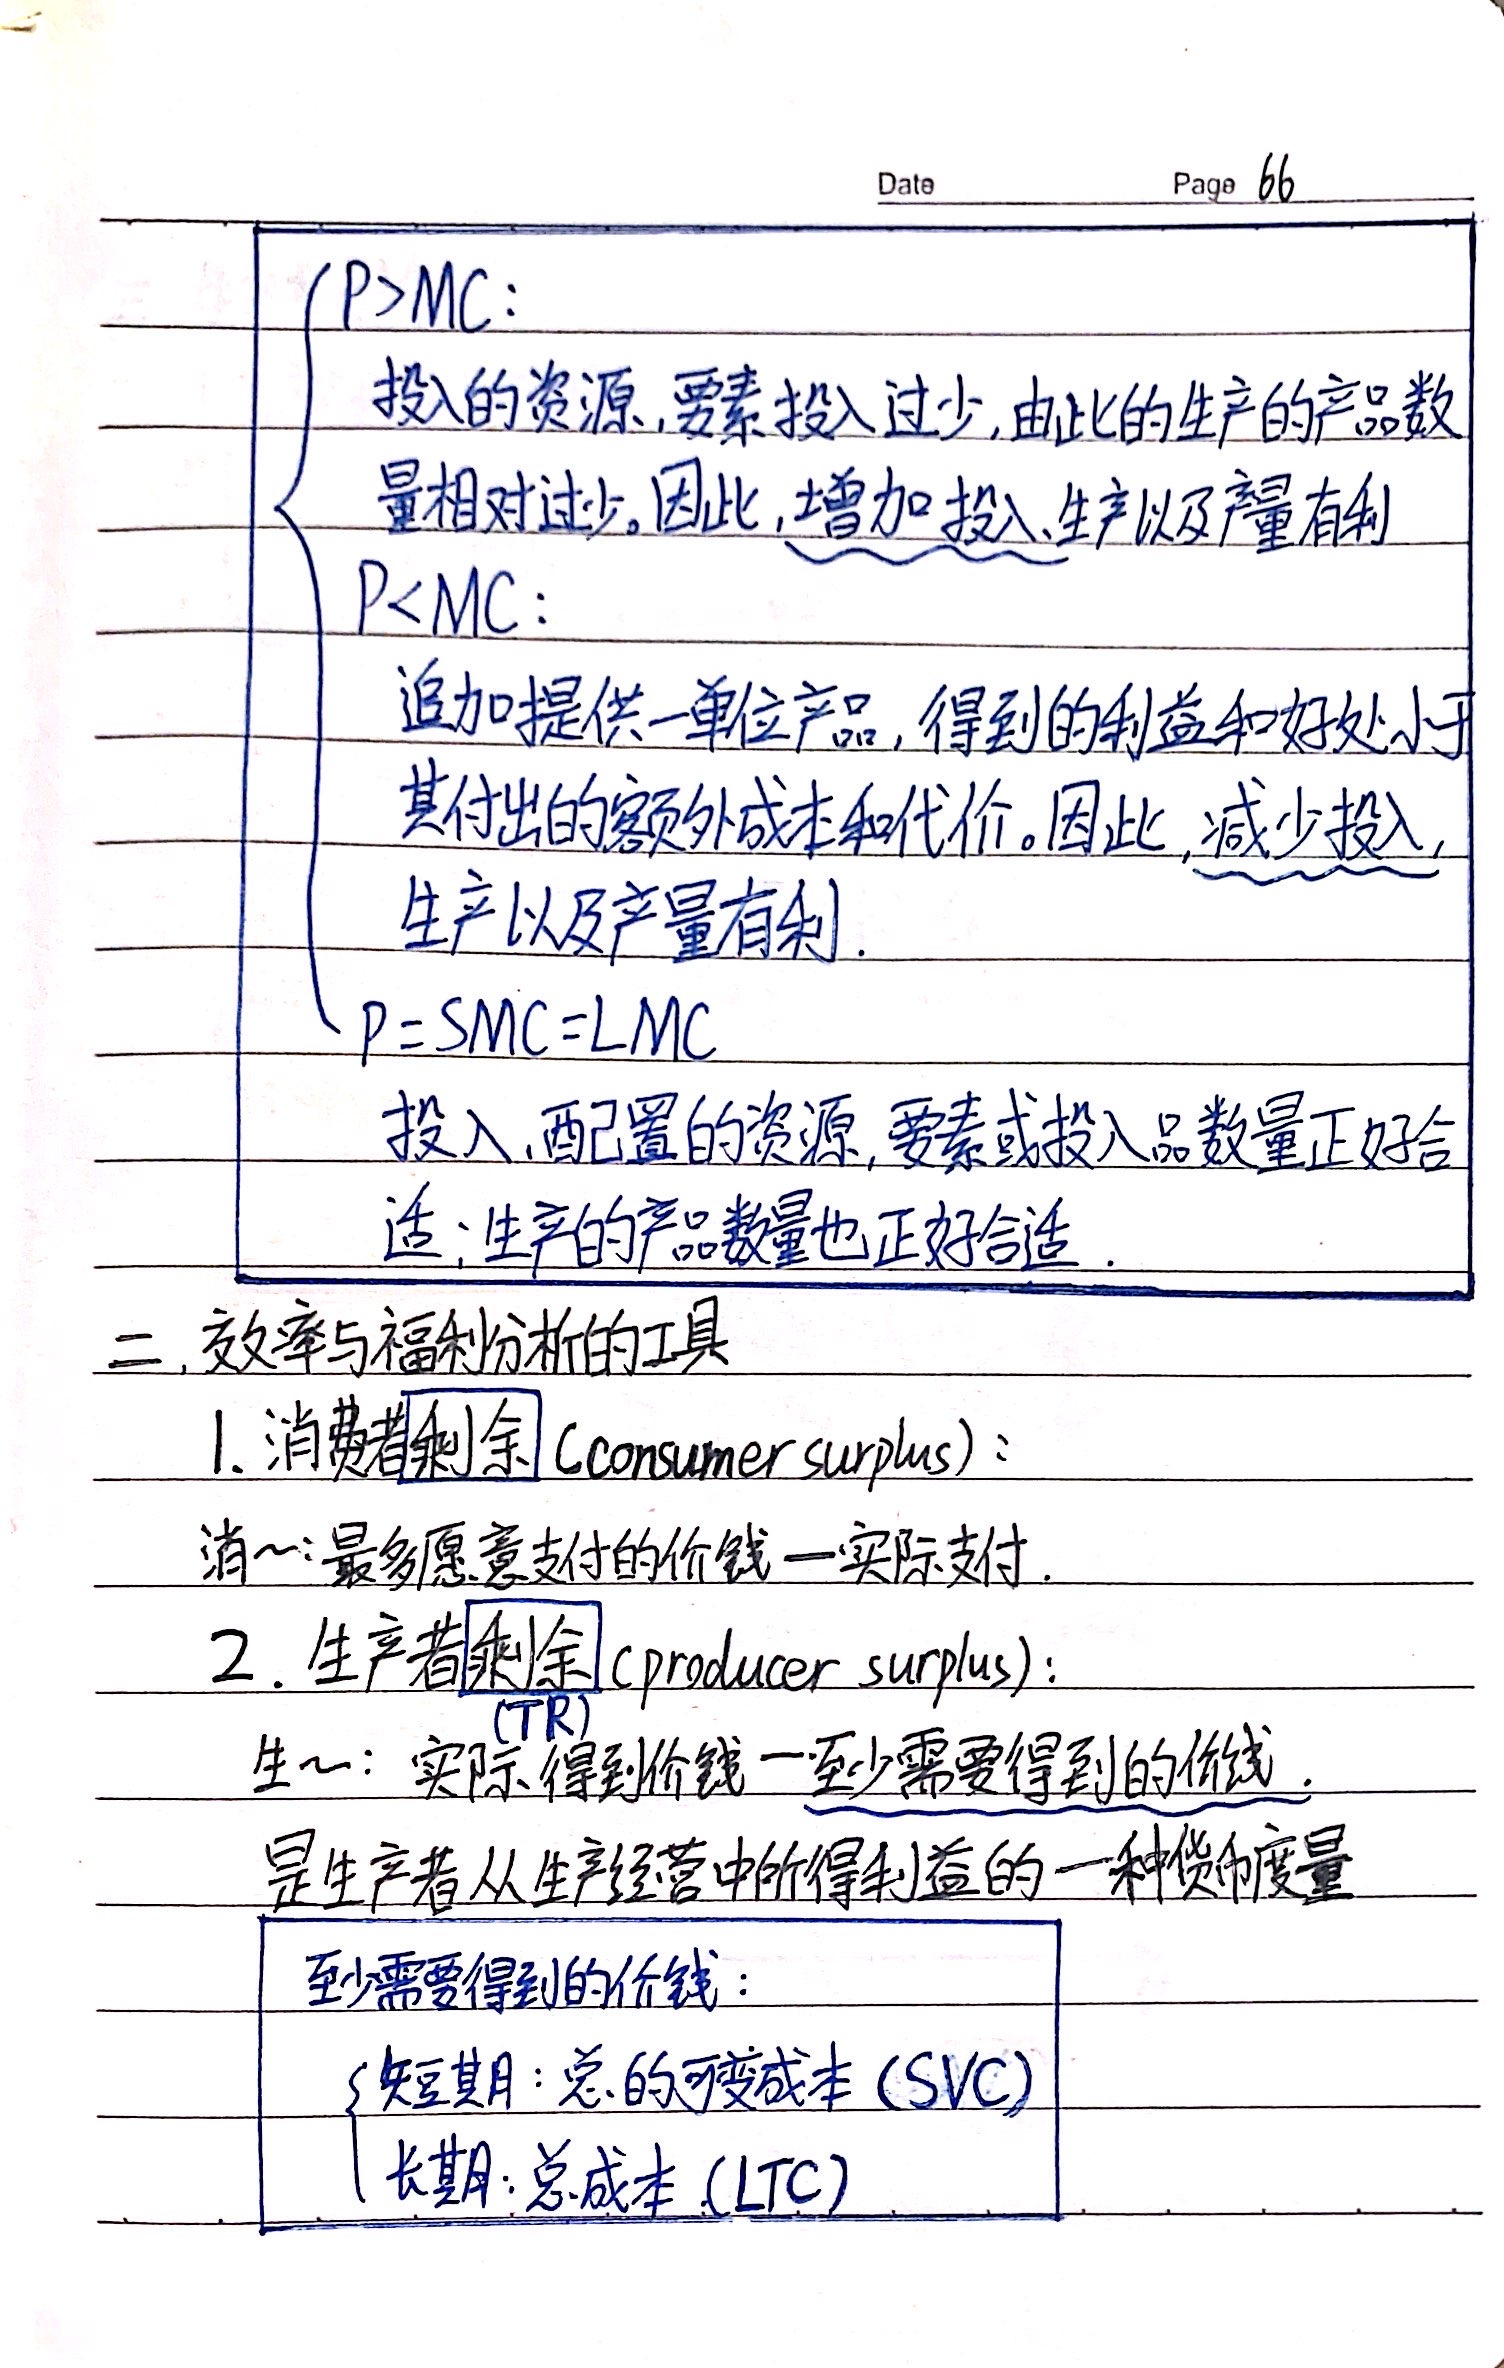 Date Page 66
P>MC:
投入的资源,要素投入过少,由此的生产的产品数
量相对过少。因此,增加投入、生产以及产量有利
P<MC:
追加提供一单位产品,得到的利益和好处小于
其付出的额外成本和代价。因此,减少投入,
生产以及产量有利.
P=SMC=LMC
投入、配置的资源,要素或投入品数量正好合
适;生产的产品数量也正好合适.
二、效率与福利分析的工具
1.消费者剩余(consumer surplus):
消~:最多愿意支付的价钱—实际支付.
2.生产者剩余(producer surplus):
(TR)
生~:实际得到价钱—至少需要得到的价钱.
是生产者从生产经营中所得利益的一种货币度量
至少需要得到的价钱:
短期:总的可变成本(SVC)
长期:总成本(LTC)